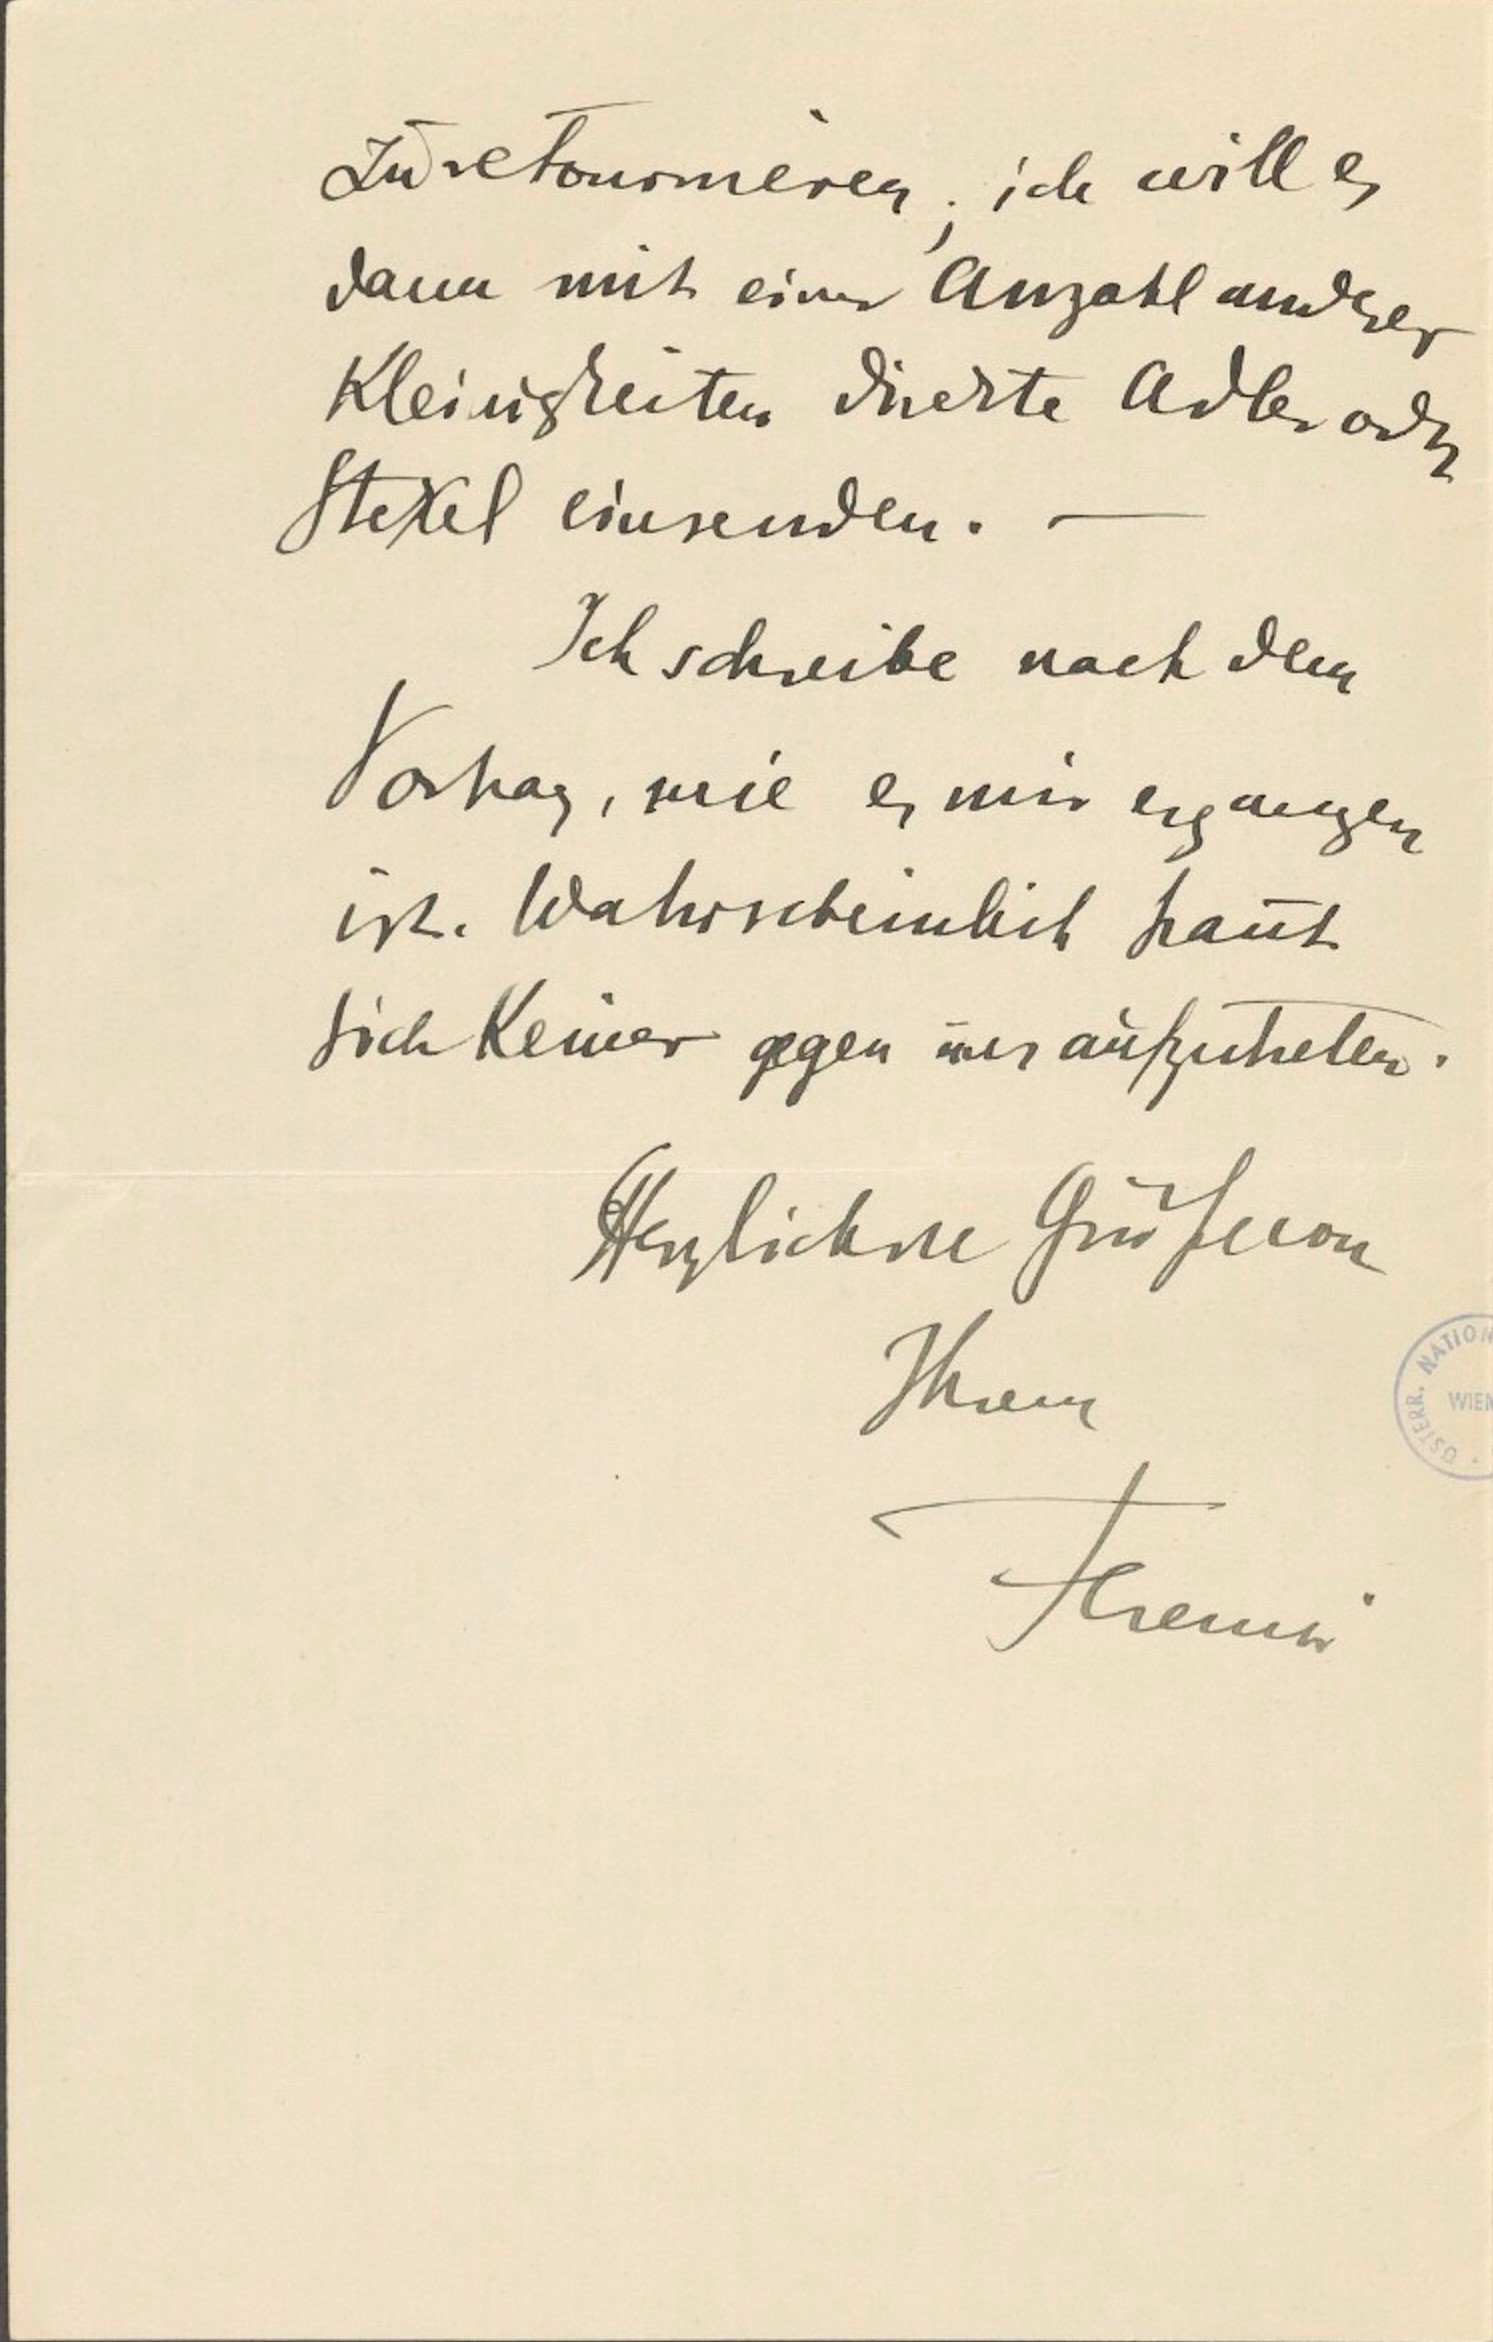 zu retournieren; ich will es
dann mit einer Anzahl andrer
Kleinigkeiten direkte Adler oder
Stekel einsenden. —
Ich schreibe nach dem
Vortrag, wie es mir ergangen
ist. Wahrscheinlich traut
sich Keiner gegen uns aufzutreten.
Herzlichste Grüße von
Ihrem
Ferenczi
ÖSTERR. NATION
WIEN